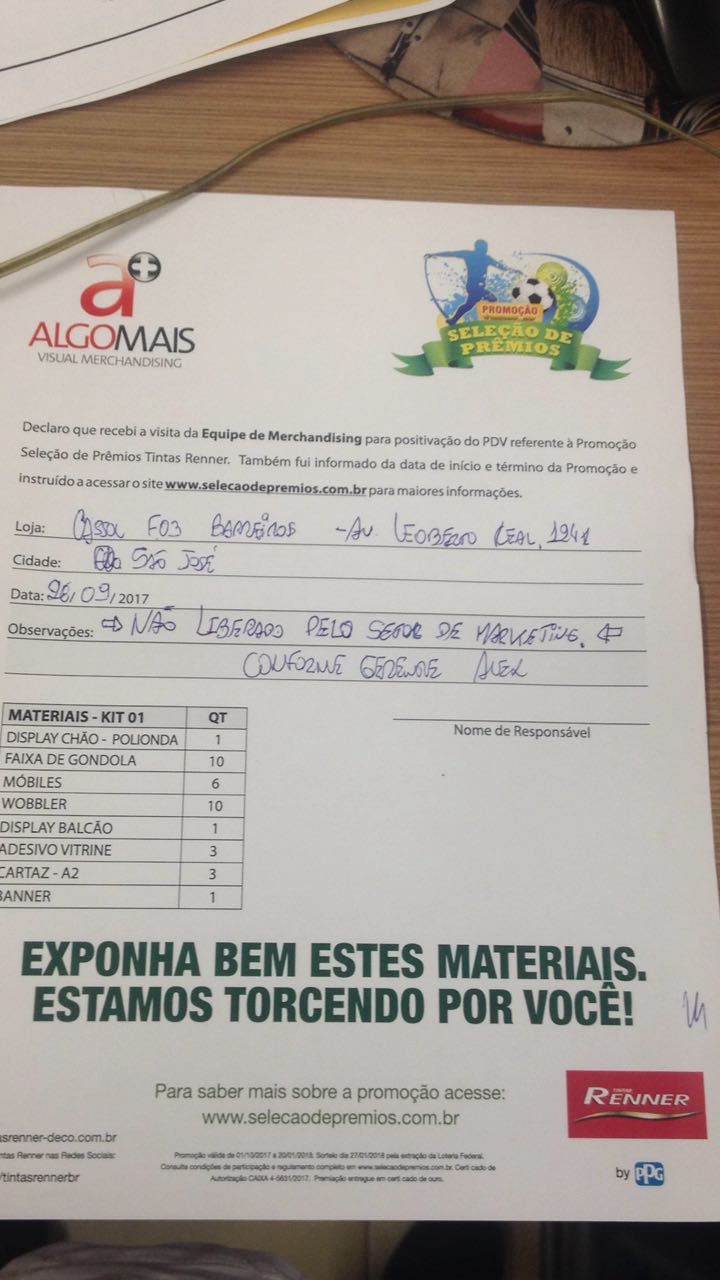 a+
ALGOMAIS
VISUAL MERCHANDISING
PROMOÇÃO
SELEÇÃO DE
PRÊMIOS
Declaro que recebi a visita da Equipe de Merchandising para positivação do PDV referente à Promoção
Seleção de Prêmios Tintas Renner. Também fui informado da data de início e término da Promoção e
instruído a acessar o site www.selecaodepremios.com.br para maiores informações.
Loja: CASSOL F03 BARREIROS - AV. LEOBERTO LEAL, 1241
Cidade: SÃO JOSÉ
Data: 26/09/2017
Observações: ⇨ NÃO LIBERADO PELO SETOR DE MARKETING. ⇦
CONFORME GERENTE ALEX
Nome de Responsável
MATERIAIS - KIT 01 QT
DISPLAY CHÃO - POLIONDA 1
FAIXA DE GONDOLA 10
MÓBILES 6
WOBBLER 10
DISPLAY BALCÃO 1
ADESIVO VITRINE 3
CARTAZ - A2 3
BANNER 1
EXPONHA BEM ESTES MATERIAIS.
ESTAMOS TORCENDO POR VOCÊ!
Para saber mais sobre a promoção acesse:
www.selecaodepremios.com.br
TINTAS
RENNER
by PPG
asrenner-deco.com.br
ntas Renner nas Redes Sociais:
/tintasrennerbr
Promoção válida de 01/10/2017 a 20/01/2018. Sorteio dia 27/01/2018 pela extração da Loteria Federal.
Consulte condições de participação e regulamento completo em www.selecaodepremios.com.br. Certi cado de
Autorização CAIXA 4-5631/2017. Premiação entregue em certi cado de ouro.